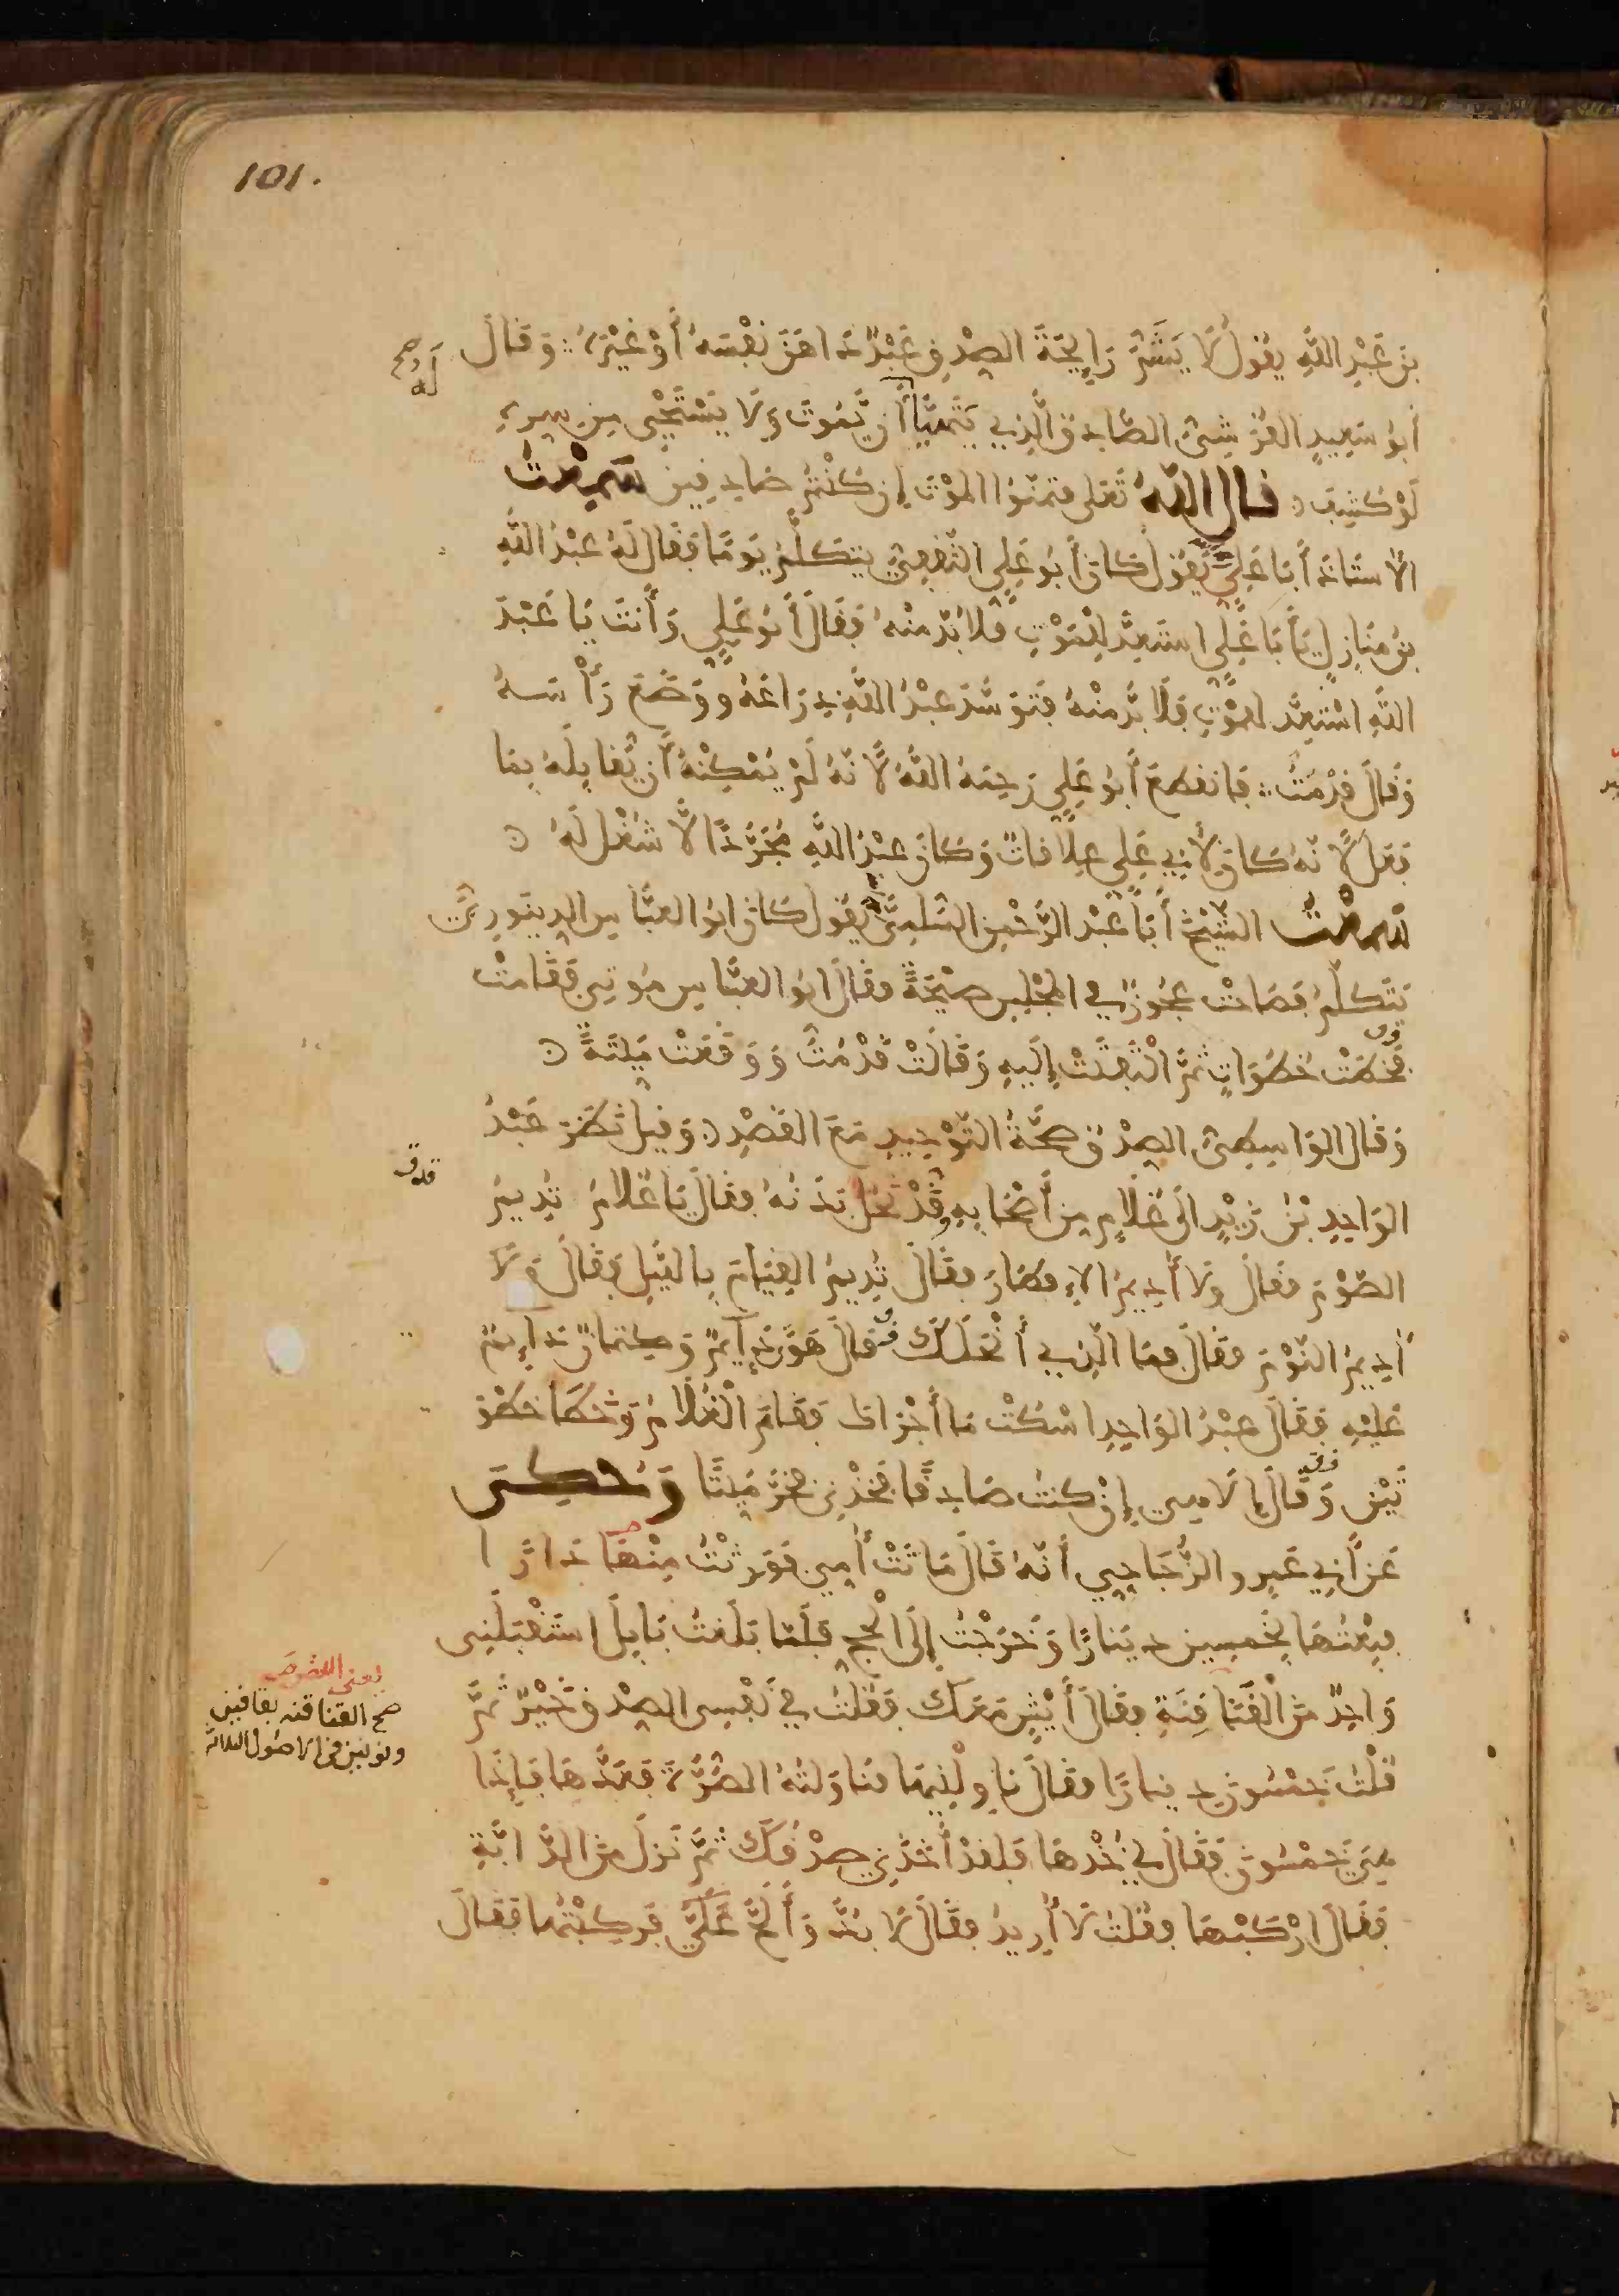 101.
بن عبد الله يقول لا يشم رايحة الصدق عبد داهن نفسه أو غيره ∴ وقال
له صح
أبو سعيد القرشي الصادق الذي يتهيأ أن يموت ولا يستحيى من سره
لو كشف قال الله تعلى فتمنوا الموت إن كنتم صادقين سمعت
الاستاذ أبا علي يقول كان أبو علي الثقفي يتكلم يوما فقال له عبد الله
بن منازل يأبا علي استعد للموت فلا بد منه فقال أبو علي وأنت يا عبد
الله استعد للموت فلا بد منه فتوسد عبد الله ذراعه ووضع رأسه
وقال قد مت ∴ فانقطع أبو علي رحمه الله لأنه لم يمكنه أن يقابله بما
فعل لأنه كان لأبي علي علاقات وكان عبد الله مجردا لا شغل له
سمعت الشيخ أبا عبد الرحمن السلمي يقول كان ابو العباس الدينوري
يتكلم فصاحت عجوز في المجلس صيحة فقال ابو العباس موتي فقامت
فخطت خطوات ثم التفتت إليه وقالت قد مت ووقعت ميتة
وقال الواسطي الصدق صحة التوحيد مع القصد وقيل نظر عبد
الواحد بن زيد الى غلام من أصحابه وقد نحل بدنه فقال يا غلام تديم
الصوم فقال ولا أديم الإفطار فقال تديم القيام بالليل فقال ولا
أديم النوم فقال فما الذي أنحلك فقال هوى دايم وكتمان دايم
عليه فقال عبد الواحد اسكت ما أجراك فقام الغلام وخطا خطو
تين وقال إلاهي إن كنت صادقا فخذني فخر ميتا وحكى
عن أبي عمرو الزجاجي أنه قال ماتت أمي فورثت منها دارا
فبعتها بخمسين دينارا وخرجت إلى الحج فلما بلغت بابل استقبلني
واحد من القناقنة فقال أيش معك فقلت في نفسي الصدق خير ثم
يعني اللصوص
صح القناقنه بقافين
ونونين في الاصول الثلاثة
قلت خمسون دينارا فقال ناولنيها فناولته الصرة فعدها فإذا
هي خمسون فقال لي خذها فلقد أخذني صدقك ثم نزل من الدابة
فقال اركبها فقلت لا أريد فقال لا بد وألح علي فركبتها فقال